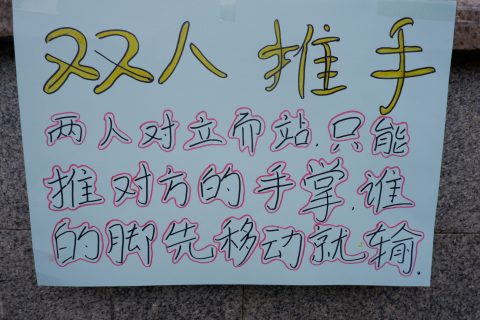 双人 推手
两人对立而站.只能
推对方的手掌.谁
的脚先移动就输.